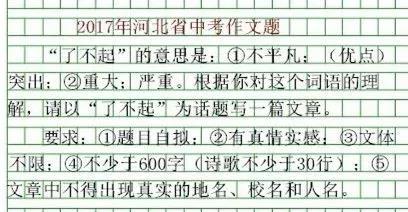 2017年河北省中考作文题
“了不起”的意思是：①不平凡；（优点）
突出；②重大；严重。根据你对这个词语的理
解，请以“了不起”为话题写一篇文章。
要求：①题目自拟；②有真情实感；③文体
不限；④不少于600字（诗歌不少于30行）；⑤
文章中不得出现真实的地名、校名和人名。